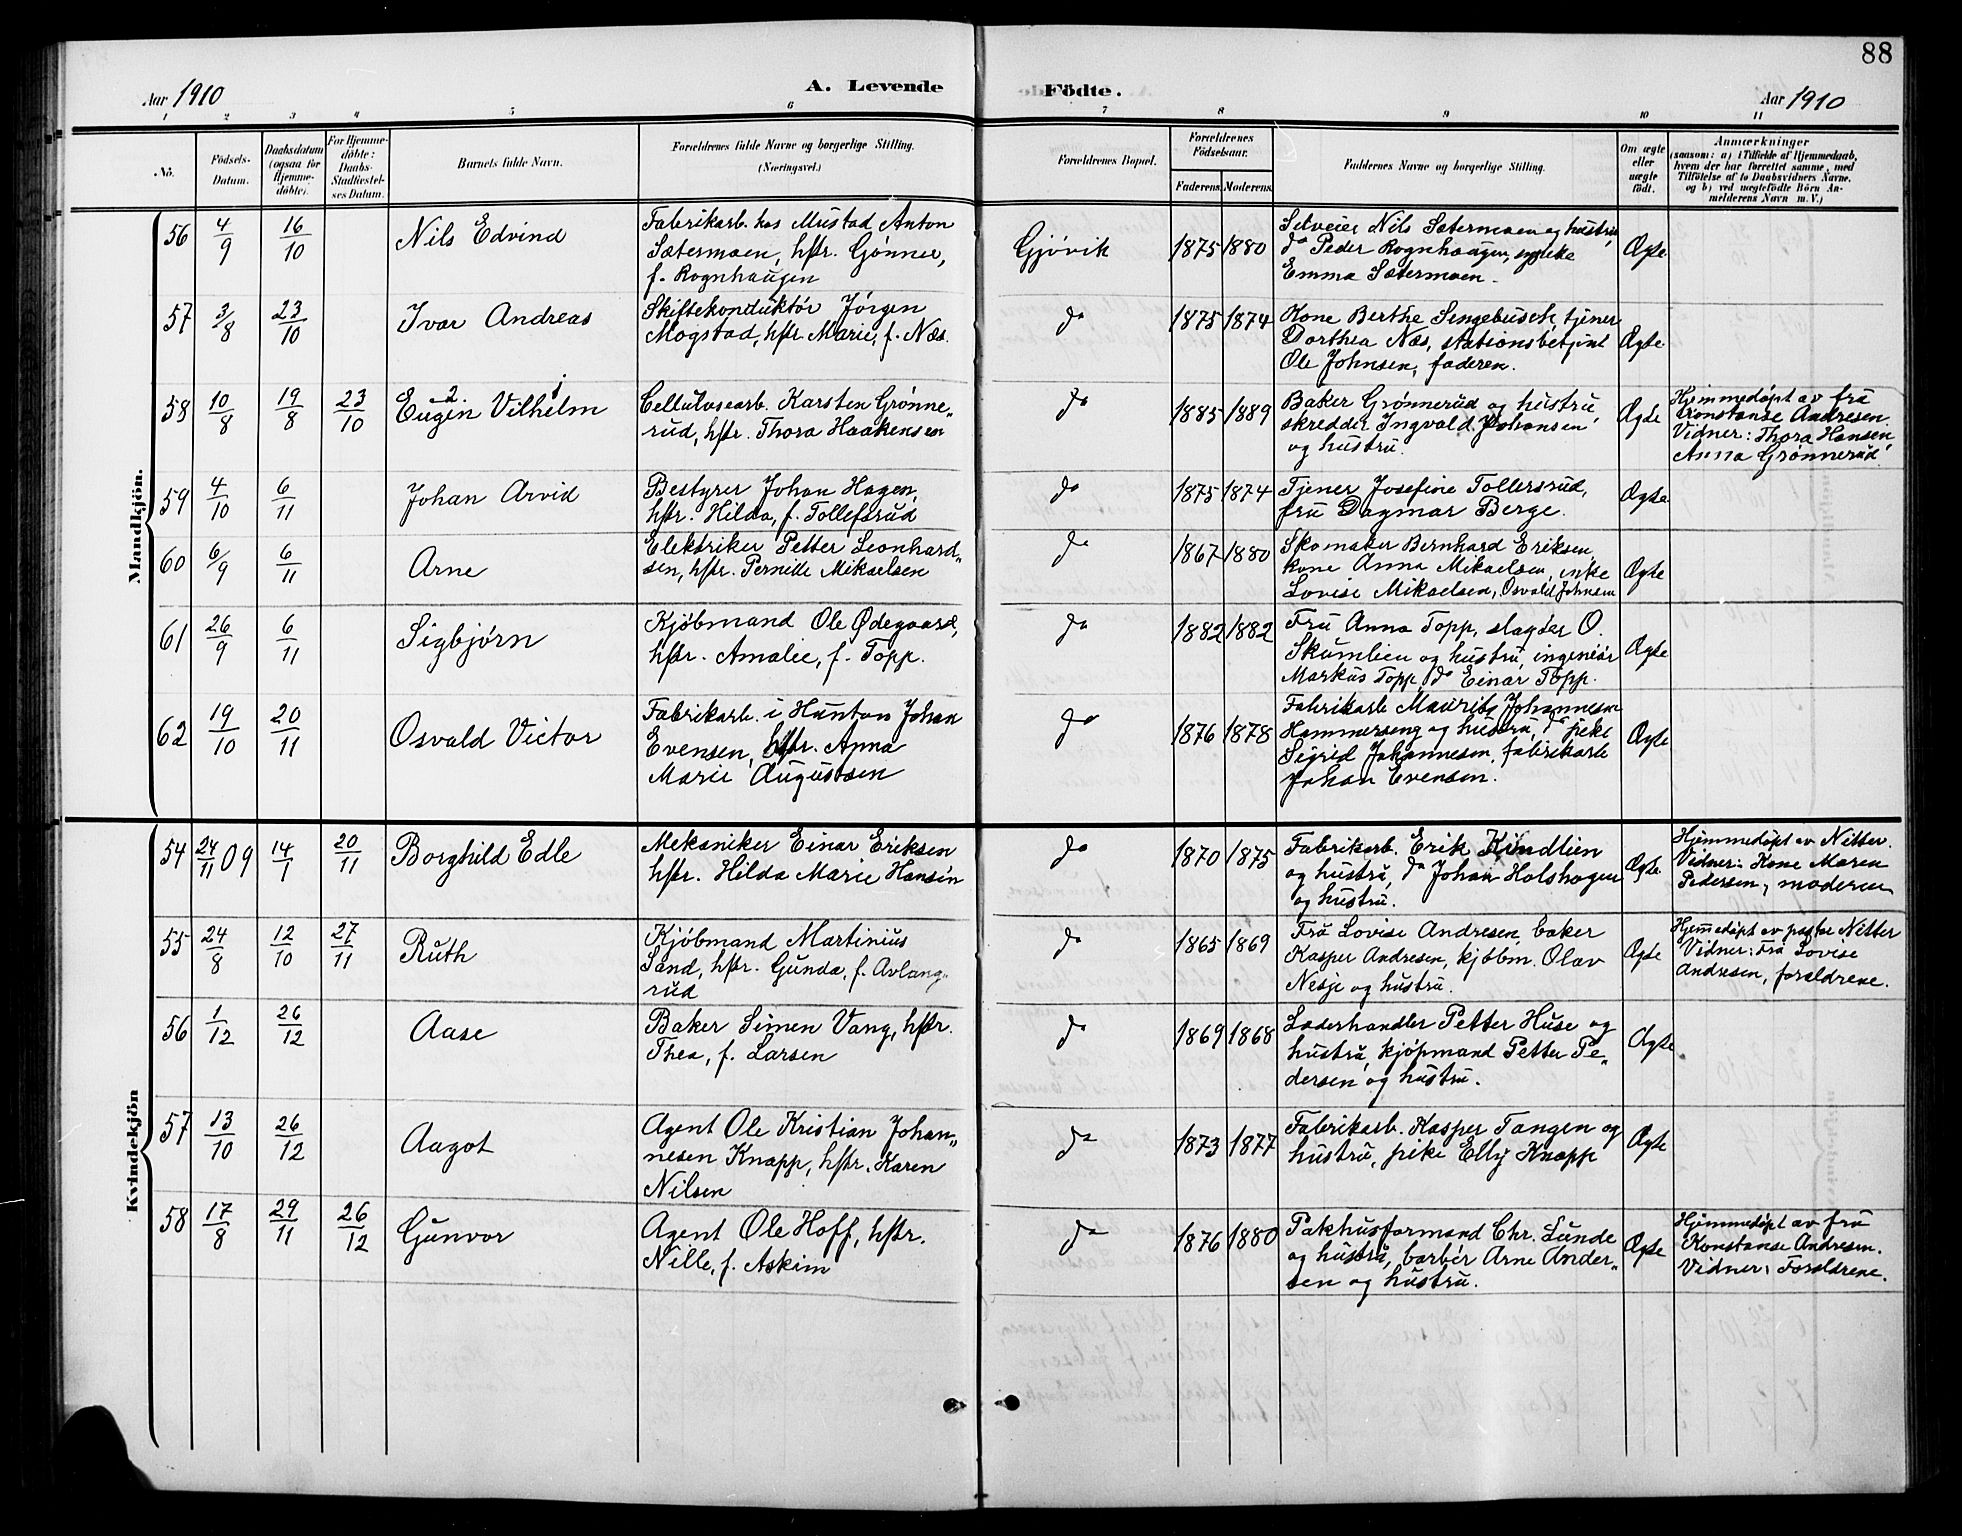 88
Aar 1910
A. Levende Födte.
Aar 1910
1 2 3 4 5 6 7 8 9 10 11
No. Födsels-Datum. Daabsdatum (ogsaa for Hjemmedöbte). For Hjemmedöbte: Daabs-Stadfæstelses Datum. Barnets fulde Navn. Forældrenes fulde Navne og borgerlige Stilling. (Næringsvei.) Forældrenes Bopæl. Forældrenes Födselsaar. Faderens. Moderens. Faddernes Navne og borgerlige Stilling. Om ægte eller uægte födt. Anmærkninger
(saasom: a) i Tilfælde af Hjemmedaab,
hvem der har forrettet samme, med
Tilföielse af to Daabsvidners Navne.
og b) ved uægtefödte Börn Anmelderens Navn m. V.)
Mandkjön.
56 4/9 16/10 Nils Edvind
Fabrikarb. hos Mustad Anton
Sætermoen, hstr. Gønner,
f. Rognhaugen
Gjövik 1875 1880
Nils Sætermoen og hustru,
do Peder Rognhaugen,
Emma Sætermoen.
Ægte
57 3/8 23/10 Ivar Andreas
Skiftekonduktör Jörgen
Mogstad, hstr. Marie, f. Næs.
do 1875 1874
Kone Berthe Sengebusch, tjener
Dorthea Næs, stationsbetjent
Ole Johnsen, faderen.
Ægte
58 10/8 19/8 23/10 Eugen Vilhelm
2. 1
Cellulosearb. Karsten Grønne-
rud, hstr. Thora Haakensen
do 1885 1889
Baker Grønnerud og hustru,
skredder Ingvald Johansen
og hustru.
Ægte
Hjemmedöpt av fru
Konstanse Andresen.
Vidner: Thora Hansen,
Anna Grønnerud
59 4/10 6/11 Johan Arvid
Bestyrer Johan Hagen,
hstr. Hilda, f. Tollefsrud
do 1875 1874
Tjener Josefine Tollersrud,
fru Dagmar Berge.
Ægte
60 6/9 6/11 Arne
Elektriker Petter Leonhard-
sen, hstr. Pernille Mikaelsen
do 1867 1880
Skomaker Bernhard Eriksen,
kone Anna Mikaelsen, enke
Lovise Mikaelsen, Osvald Johnsen
Ægte
61 26/9 6/11 Sigbjørn
Kjøbmand Ole Ødegaard,
hstr. Amalie, f. Topp.
do 1882 1882
Fru Anna Topp, slagter O.
Skumlien og hustru, ingeniör
Markus Topp, do Einar Topp.
Ægte
62 19/10 20/11 Osvald Victor
Fabrikarb. i Hunton Johan
Evensen, hstr. Anna
Marie Augustsen
do 1876 1878
Fabrikarb Maurits Johannesen
Hammerseng og hustru, pike
Sigrid Johannesen, fabrikarb
Johan Evensen.
Ægte
Kvindekjön
54 24/11 09 14/1 20/11 Borghild Edle
Mekaniker Einar Eriksen
hstr. Hilda Marie Hansen
do 1870 1875
Fabrikarb. Erik Kindlien
og hustru, do Johan Holshagen
og hustru.
Ægte
Hjemmedöpt av Nitter.
Vidner: Kone Maren
Pedersen, moderen
55 24/8 12/10 27/11 Ruth
Kjöbmand Martinius
Sand, hstr. Gunda, f. Avlang-
rud
do 1865 1869
Fru Lovise Andresen, baker
Kasper Andresen, kjöbm. Olav
Nesje og hustru.
Ægte
Hjemmedöpt av pastor Nitter
Vidner: Fru Lovise
Andresen, forældrene.
56 1/12 26/12 Aase
Baker Simen Vang, hstr.
Thea, f. Larsen
do 1869 1868
Læderhandler Petter Huse og
hustru, kjöpmand Petter Pe-
dersen og hustru.
Ægte
57 13/10 26/12 Aagot
Agent Ole Kristian Johan-
nesen Knapp, hstr. Karen
Nilsen
do 1873 1877
Fabrikarb. Kasper Tangen og
hustru, pike Elly Knapp
Ægte
58 17/8 29/11 26/12 Gunvor
Agent Ole Hoff, hstr.
Nille, f. Askim
do 1876 1880
Pakhusformand Chr. Lunde
og hustru, barbér Arne Ander-
sen og hustru.
Ægte
Hjemmedöpt av fru
Konstanse Andresen.
Vidner: Forældrene.